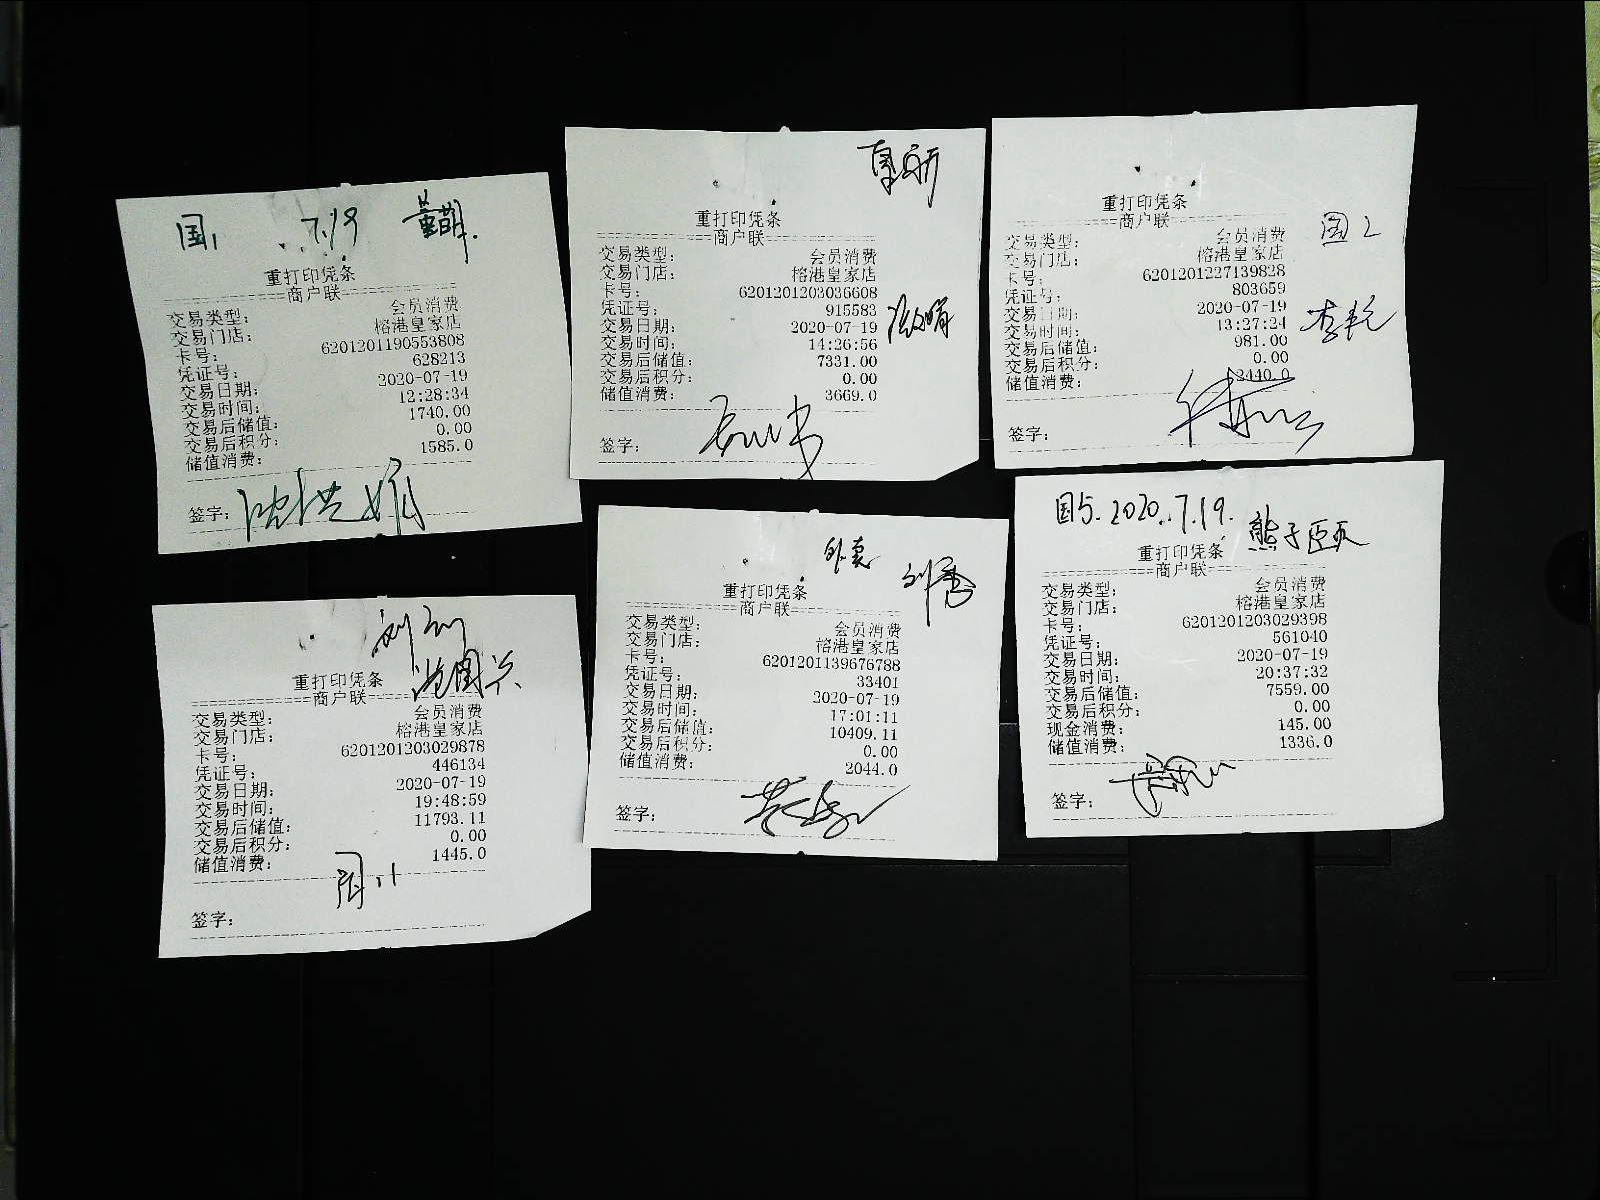 国1 7.19 董萌.
重打印凭条
商户联
交易类型: 会员消费
交易门店: 榕港皇家店
卡号: 6201201190553808
凭证号: 628213
交易日期: 2020-07-19
交易时间: 12:28:34
交易后储值: 1740.00
交易后积分: 0.00
储值消费: 1585.0
签字:
重打印凭条
商户联
交易类型: 会员消费
交易门店: 榕港皇家店
卡号: 6201201203036608
凭证号: 915583
交易日期: 2020-07-19
交易时间: 14:26:56
交易后储值: 7331.00
交易后积分: 0.00
储值消费: 3669.0
签字:
重打印凭条
商户联
国2
交易类型: 会员消费
交易门店: 榕港皇家店
卡号: 6201201227139828
凭证号: 803659
交易日期: 2020-07-19
交易时间: 13:27:24
交易后储值: 981.00
交易后积分: 0.00
储值消费: 2440.0
签字:
重打印凭条
商户联
交易类型: 会员消费
交易门店: 榕港皇家店
卡号: 6201201203029878
凭证号: 446134
交易日期: 2020-07-19
交易时间: 19:48:59
交易后储值: 11793.11
交易后积分: 0.00
储值消费: 1445.0
签字:
外卖
重打印凭条
商户联
交易类型: 会员消费
交易门店: 榕港皇家店
卡号: 6201201139676788
凭证号: 33401
交易日期: 2020-07-19
交易时间: 17:01:11
交易后储值: 10409.11
交易后积分: 0.00
储值消费: 2044.0
签字:
国5. 2020.7.19. 熊子颐
重打印凭条
商户联
交易类型: 会员消费
交易门店: 榕港皇家店
卡号: 6201201203029398
凭证号: 561040
交易日期: 2020-07-19
交易时间: 20:37:32
交易后储值: 7559.00
交易后积分: 0.00
现金消费: 145.00
储值消费: 1336.0
签字: